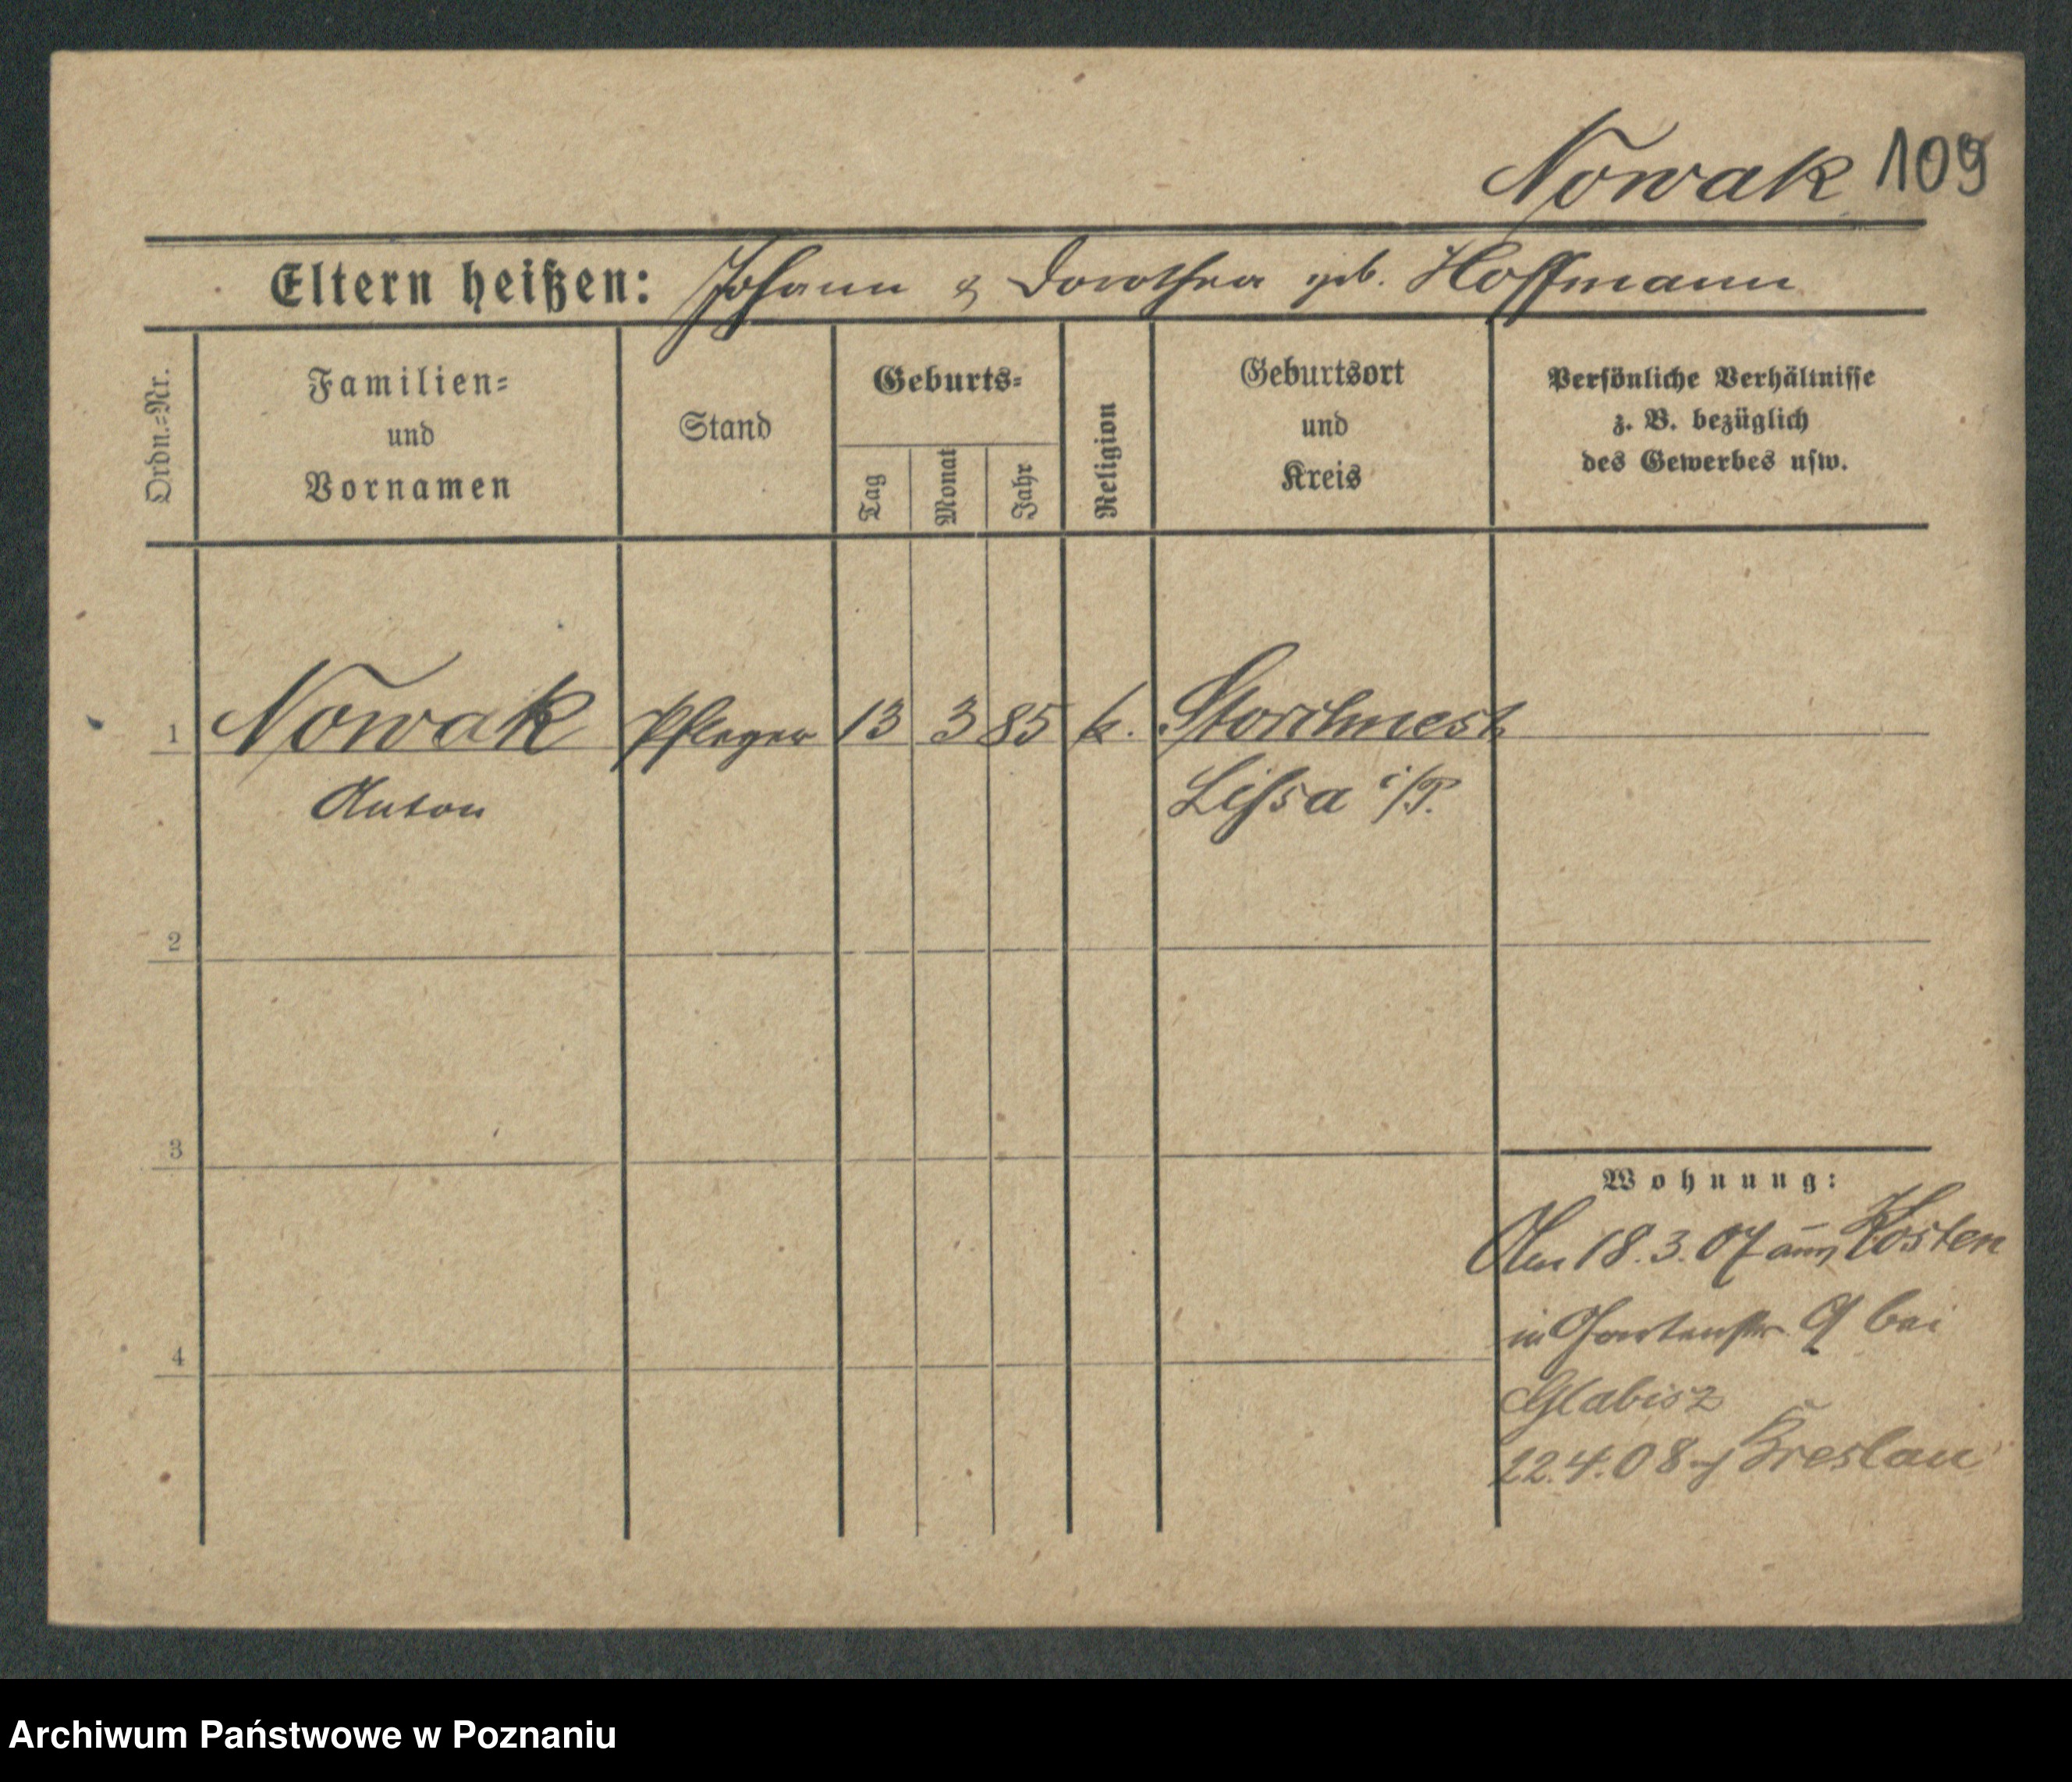 Nowak 109
Eltern heißen: Johann & Dorothea geb. Hoffmann
Ordn.-Nr.
Familien-
und
Vornamen
Stand
Geburts-
Tag
Monat
Jahr
Religion
Geburtsort
und
Kreis
Persönliche Verhältnisse
z. B. bezüglich
des Gewerbes usw.
1 Nowak Pfleger 13 3 85 k. Storchnest
Anton Lissa i/P.
2
3
Wohnung:
Am 18.3.07 Kosten
in Gartenstr. 9 bei
4
Glabisz
12.4.08 Breslau
Archiwum Państwowe w Poznaniu